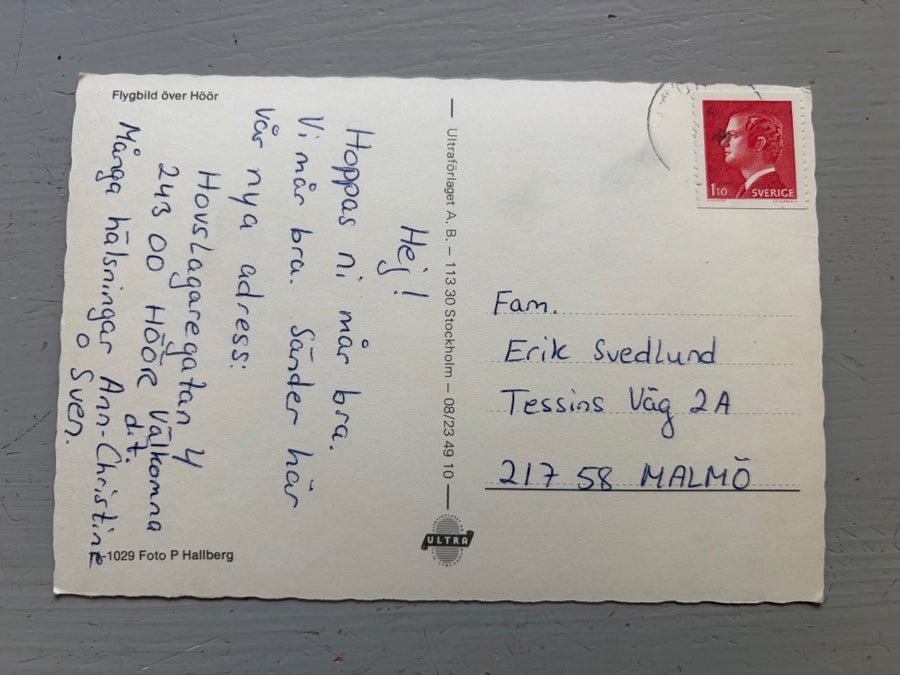 Flygbild över Höör
Hej!
Hoppas ni mår bra.
Vi mår bra. Sänder här
vår nya adress:
Hovslagaregatan 4
243 00 HÖÖR Välkomna
dit.
Många hälsningar Ann-Christine
o Sven.
-1029 Foto P Hallberg
Ultraförlaget A.B. – 113 30 Stockholm – 08/23 49 10
ULTRA
1 10
SVERIGE
Fam.
Erik Svedlund
Tessins Väg 2A
217 58 MALMÖ